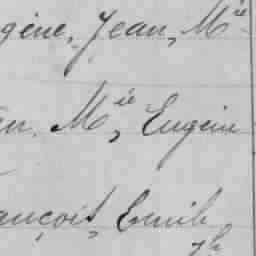 gène, Jean, Mie
en, Mie, Eugène
ançois, Emile